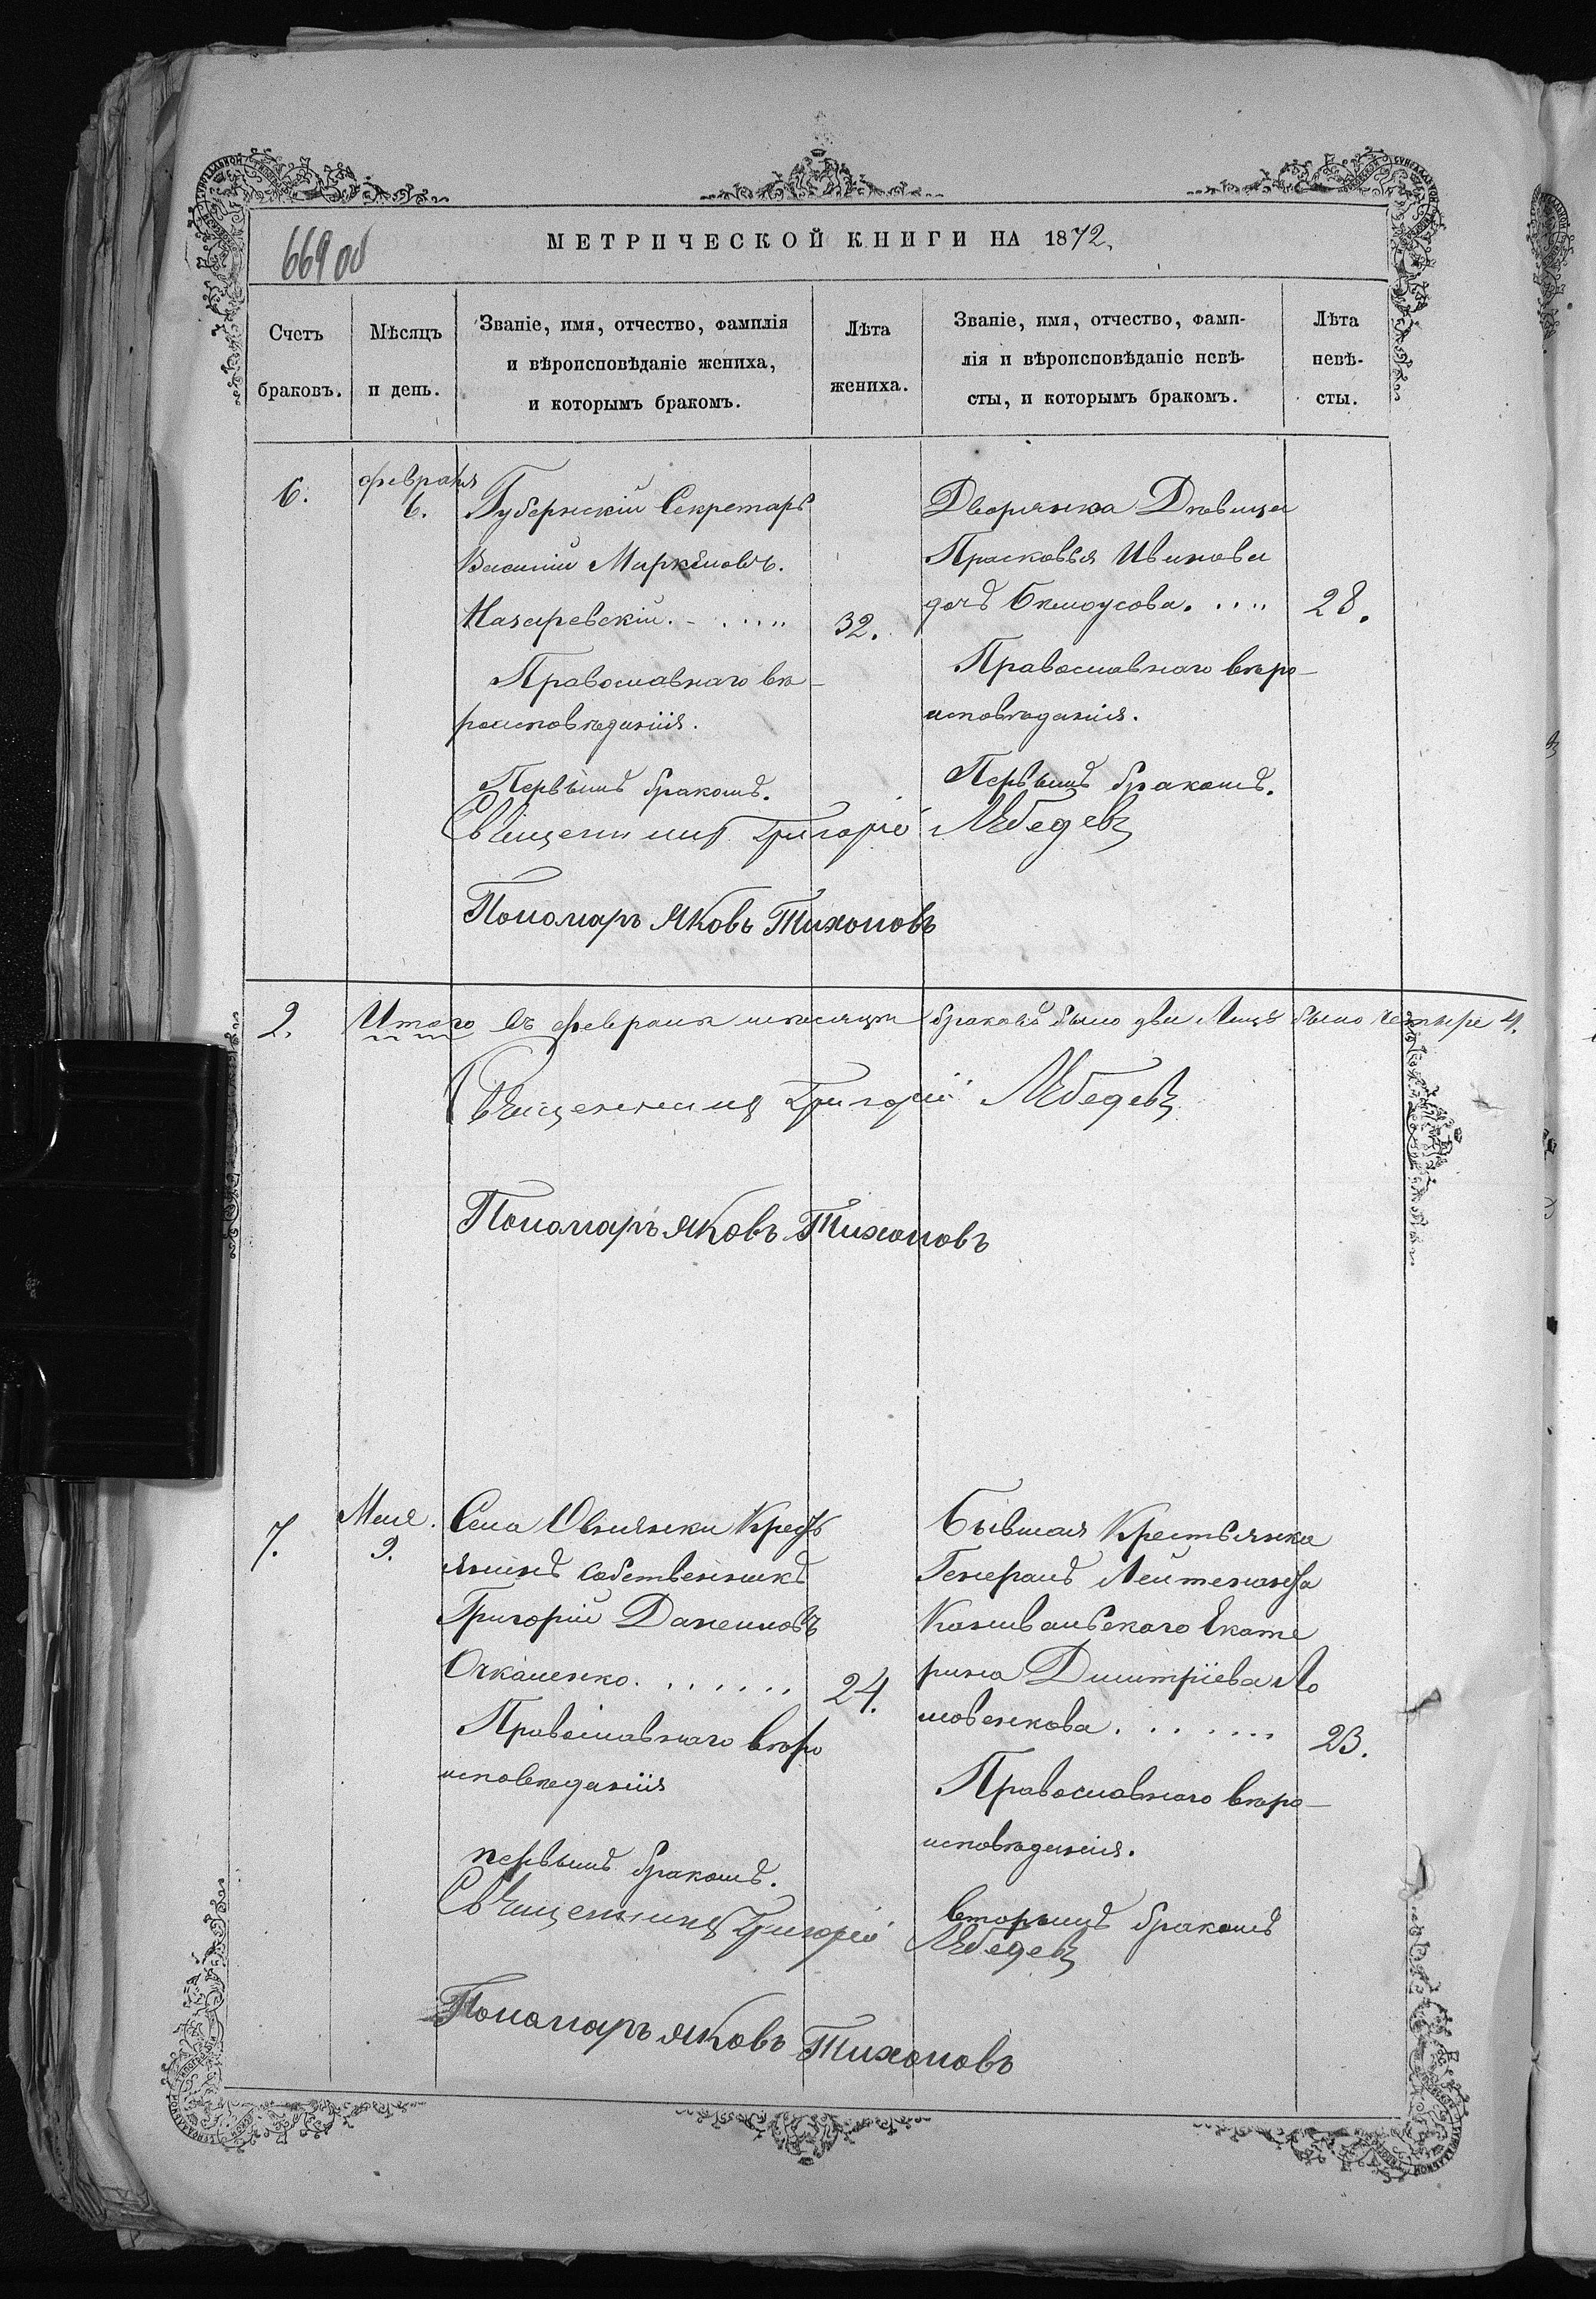 МЕТРИЧЕСКОЙ КНИГИ НА 1872.
669 об
Счетъ браковъ.
Мѣсяцъ и день.
Званіе, имя, отчество, фамилія
и вѣроисповѣданіе жениха,
и которымъ бракомъ.
Лѣта жениха.
Званіе, имя, отчество, фами-
лія и вѣроисповѣданіе невѣ-
сты, и которымъ бракомъ.
Лѣта невѣ-
сты.
6.
февраля
6.
Губернскій Секретарь
Василій Маркіановъ.
Назаревскій. - . . . . .
32.
Православнаго вѣ-
роисповѣданія.
Первымъ бракомъ.
Дворянка Дѣвица
Прасковья Иванова
дочь Бѣлоусова. . . . .
28.
Православнаго вѣро-
исповѣданія.
Первымъ бракомъ.
Священникъ Григорій Лебедевъ
Пономарь Яковъ Тихоновъ
2. Итого въ февралѣ мѣсяцѣ браковъ было два Лицъ было четыре 4.
Священникъ Григорій Лебедевъ
Пономарь Яковъ Тихоновъ
7.
Мая.
9.
Села Крестъ
янинъ собственникъ
Григорій Даниловъ
. . . . . .
24.
Православнаго вѣро
исповѣданія
первымъ бракомъ.
Бывшая Крестьянка
Генералъ Лейтенанта
Екате
рина Димитріева Ло
. . . . . .
23.
Православнаго вѣро-
исповѣданія.
вторымъ бракомъ
Священникъ Григорій Лебедевъ
Пономарь Яковъ Тихоновъ